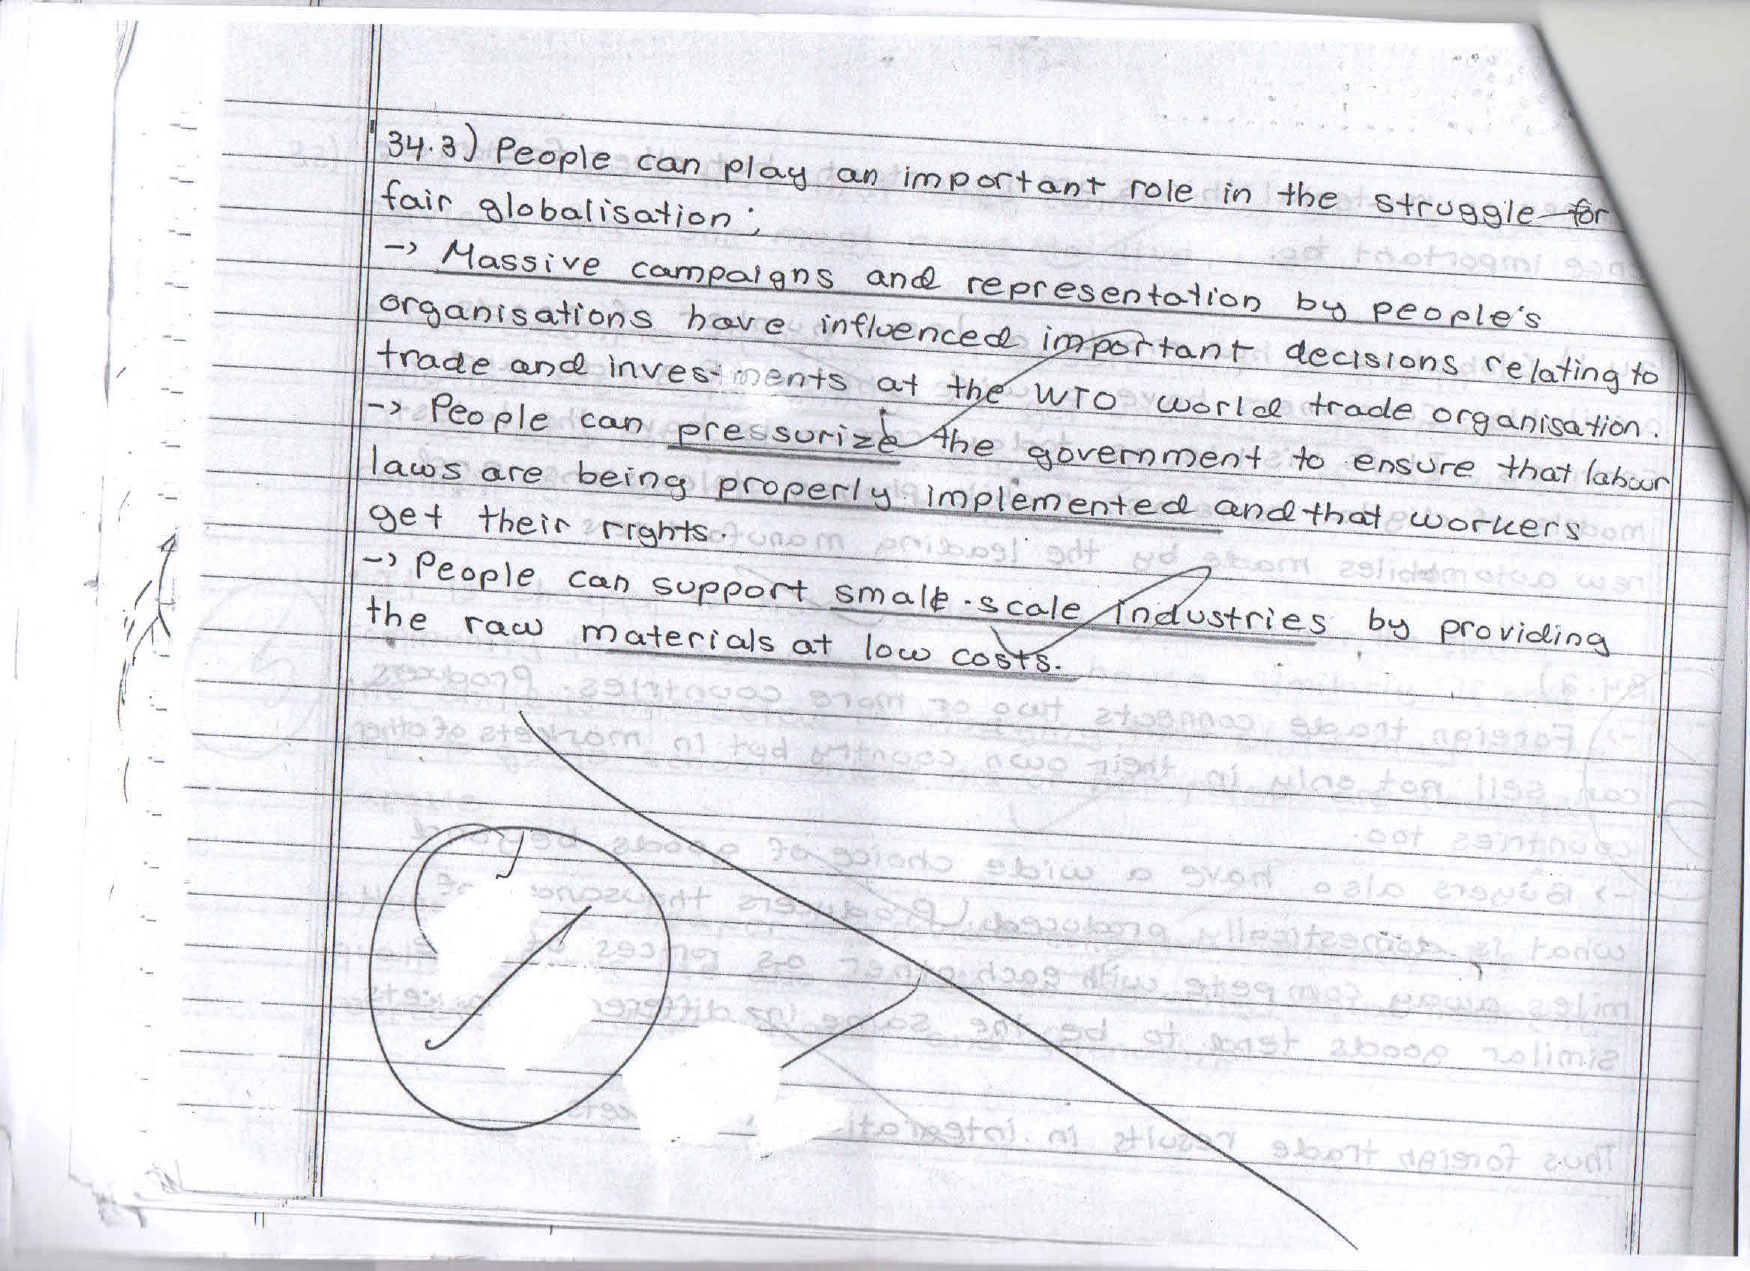 34.3) People can play an important role in the struggle for
fair globalisation;
-> Massive campaigns and representation by people's
organisations have influenced important decisions relating to
trade and investments at the WTO world trade organisation.
-> People can pressurize the government to ensure that labour
laws are being properly implemented and that workers
get their rights.
-> People can support small-scale industries by providing
the raw materials at low costs.